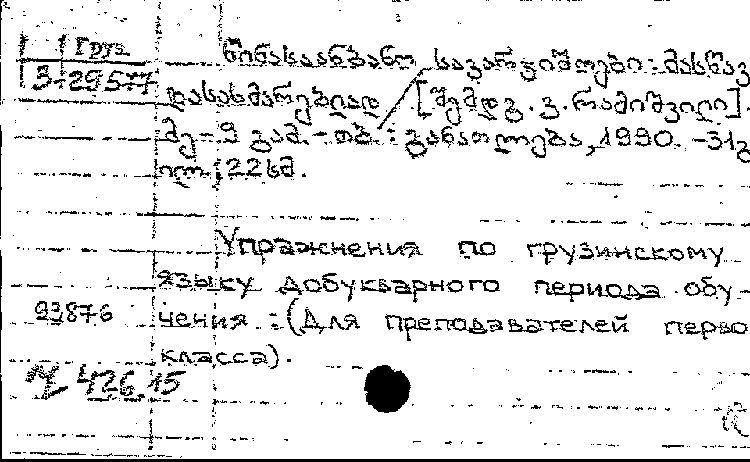 Груз
3-29577
წინასაანბანო სავარჯიშოები : მასწავ
დასახმარებლად [შემდგ. ვ. რამიშვილი]
მე-9 გამ. - თბ. : განათლება, 1990. - 31გ
ილ. ; 22 სმ.
Упражнения по грузинскому
языку добукварного периода обу-
93876 чения : (Для преподавателей перво
класса).
426.15